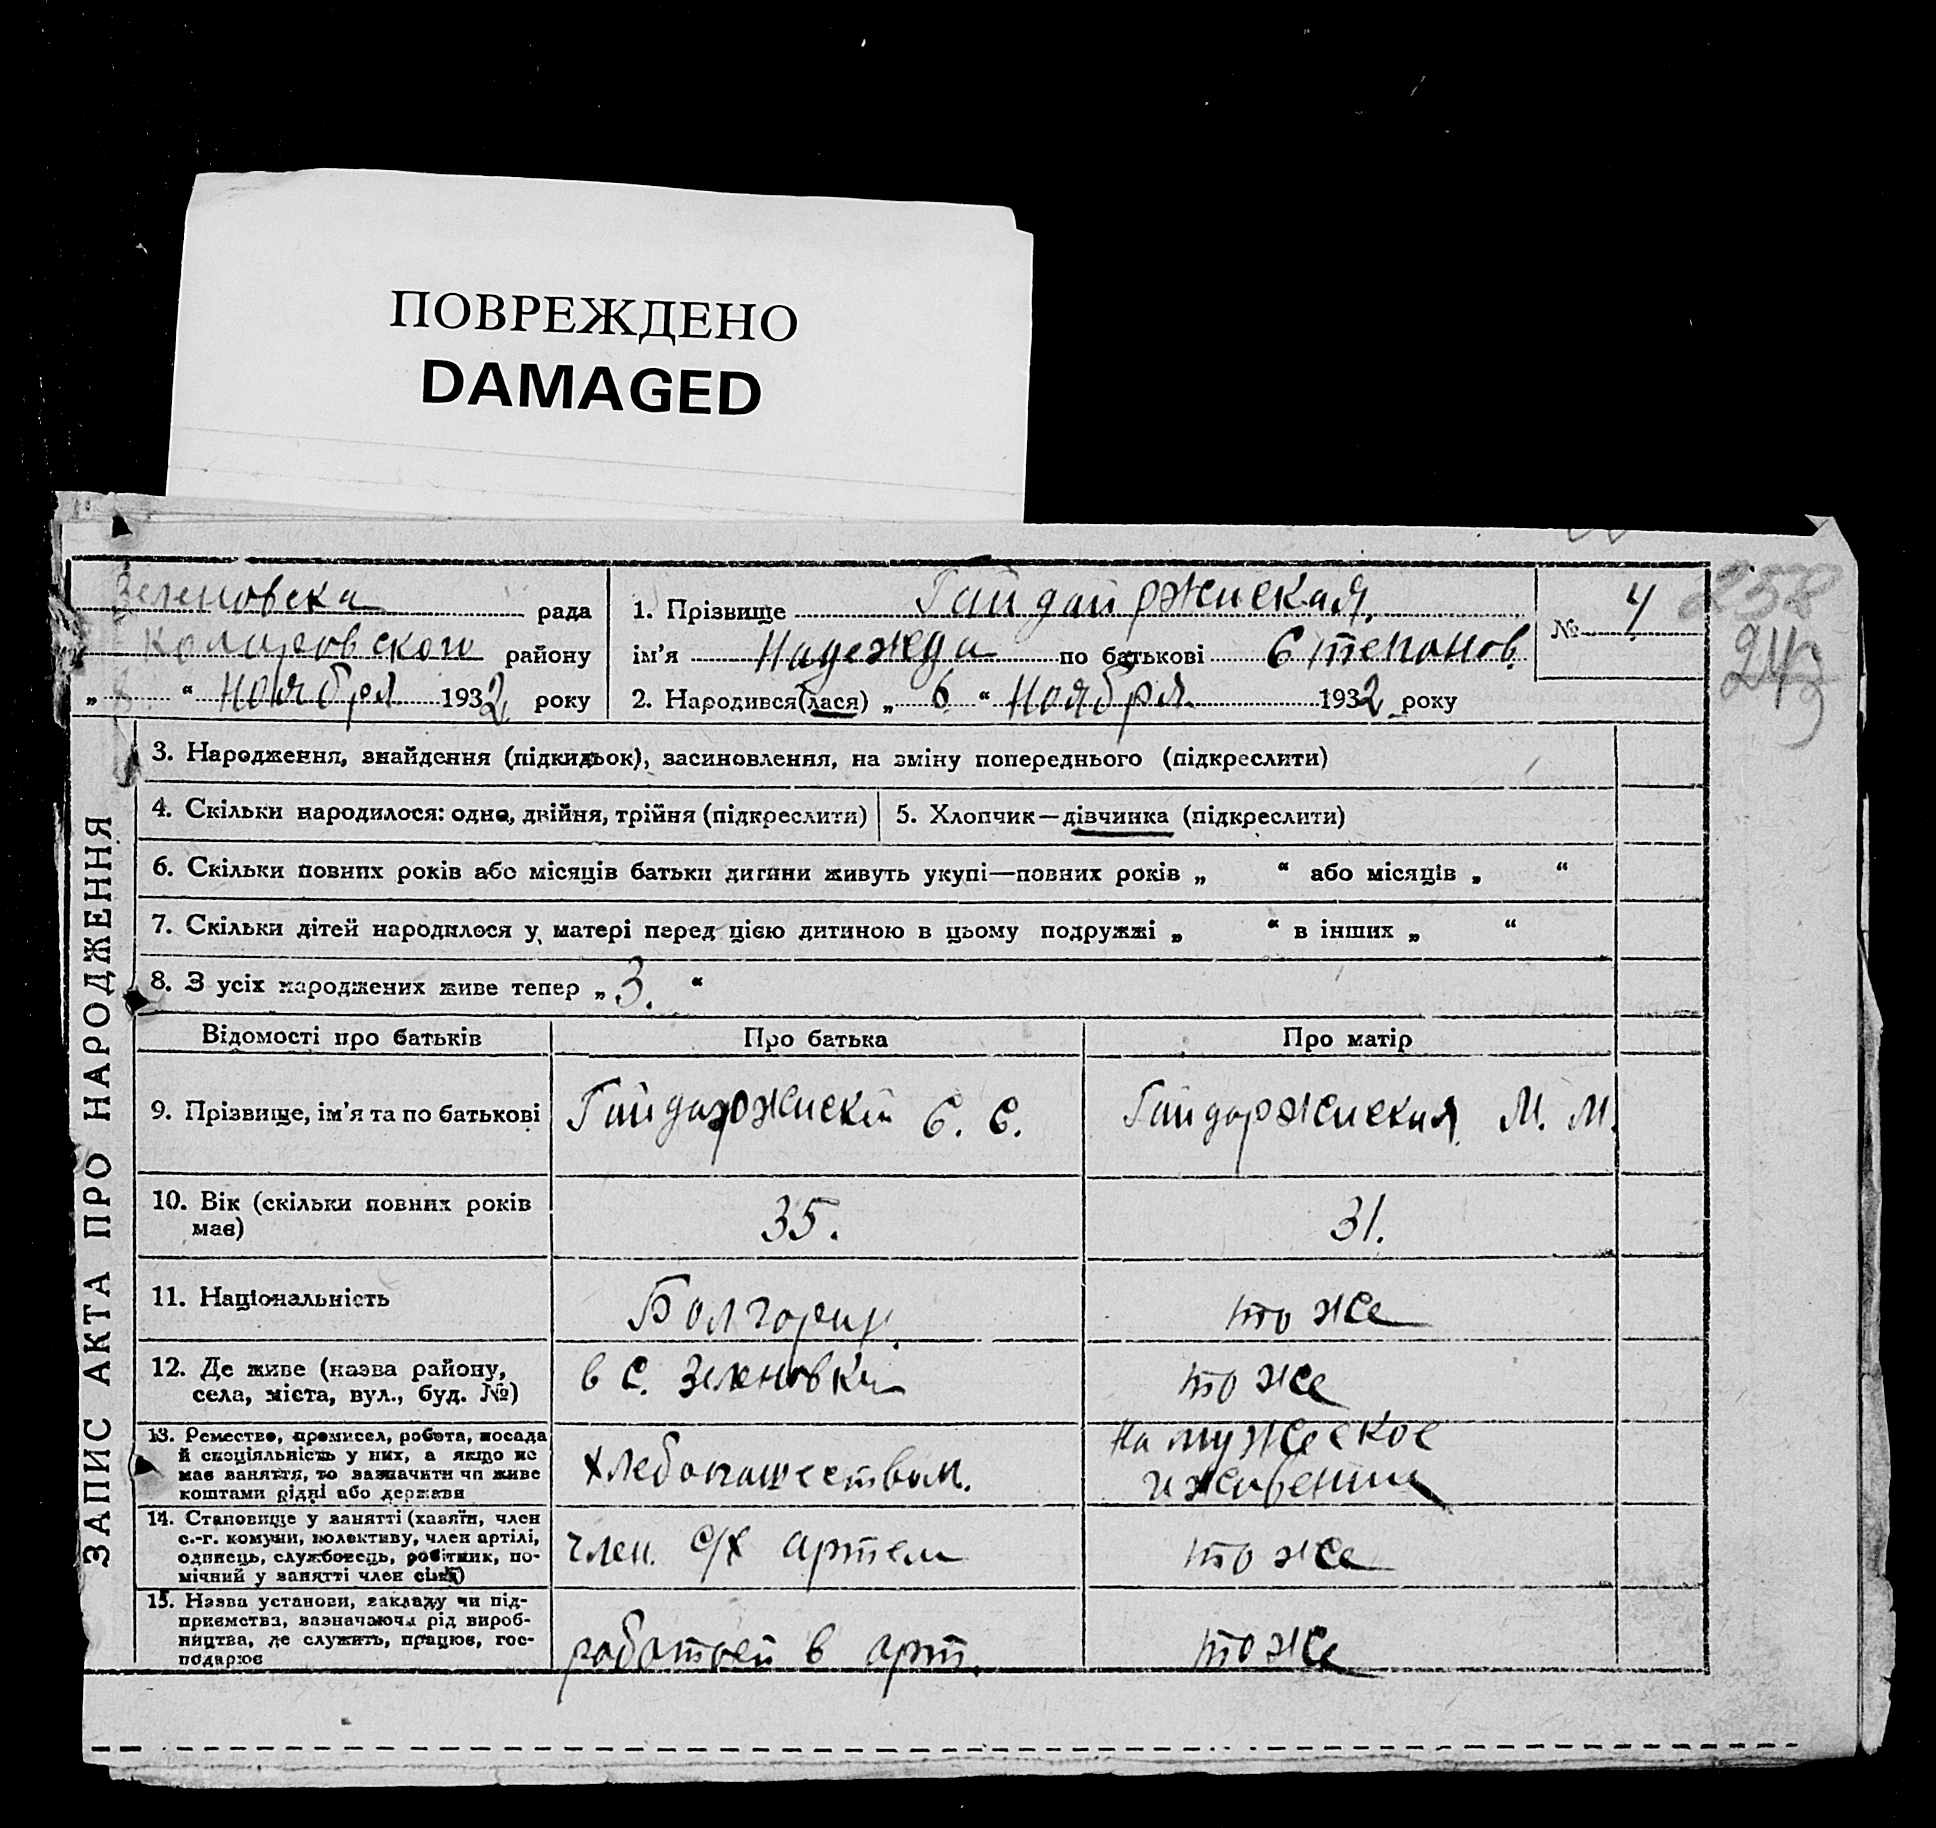 ПОВРЕЖДЕНО
DAMAGED
Зеленовска рада
района Коларовского району
„ “ Ноября 1932 року
1. Прізвище Гайдайржиская
ім'я Надежда по батькові Степанов.
2. Народився(лася) „ 6 “ Ноября 1932 року
№ 4
258
243
3. Народження, знайдення (підкидьок), засиновлення, на зміну попереднього (підкреслити)
4. Скільки народилося: одно, двійня, трійня (підкреслити)
5. Хлопчик—дівчинка (підкреслити)
6. Скільки повних років або місяців батьки дитини живуть укупі—повних років „ “ або місяців „ “
7. Скільки дітей народилося у матері перед цією дитиною в цьому подружжі „ “ в інших „ “
8. З усіх народжених живе тепер „ 3. “
ЗАПИС АКТА ПРО НАРОДЖЕННЯ
Відомості про батьків Про батька Про матір
9. Прізвище, ім'я та по батькові Гайдаржиский С. С. Гайдаржиская М. М.
10. Вік (скільки повних років
має) 35. 31.
11. Національність Болгори то же
12. Де живе (назва району,
села, міста, вул., буд. №) в с. Зеленовки то же
13. Ремество, промисел, робота, посада
й спеціяльність у них, а якщо не
має заняття, то зазначити чи живе
коштами рідні або держави
хлебопашеством.
на мужеское
иждивении
14. Становище у занятті (хазяїн, член
с.-г. комуни, колективу, член артілі,
одинець, службовець, робітник, по-
мічний у занятті член сім'ї)
член. с/х артели то же
15. Назва установи, закладу чи під-
приємства, зазначаючи рід вироб-
ництва, де служить, працює, гос-
подарює
работает в арт. то же